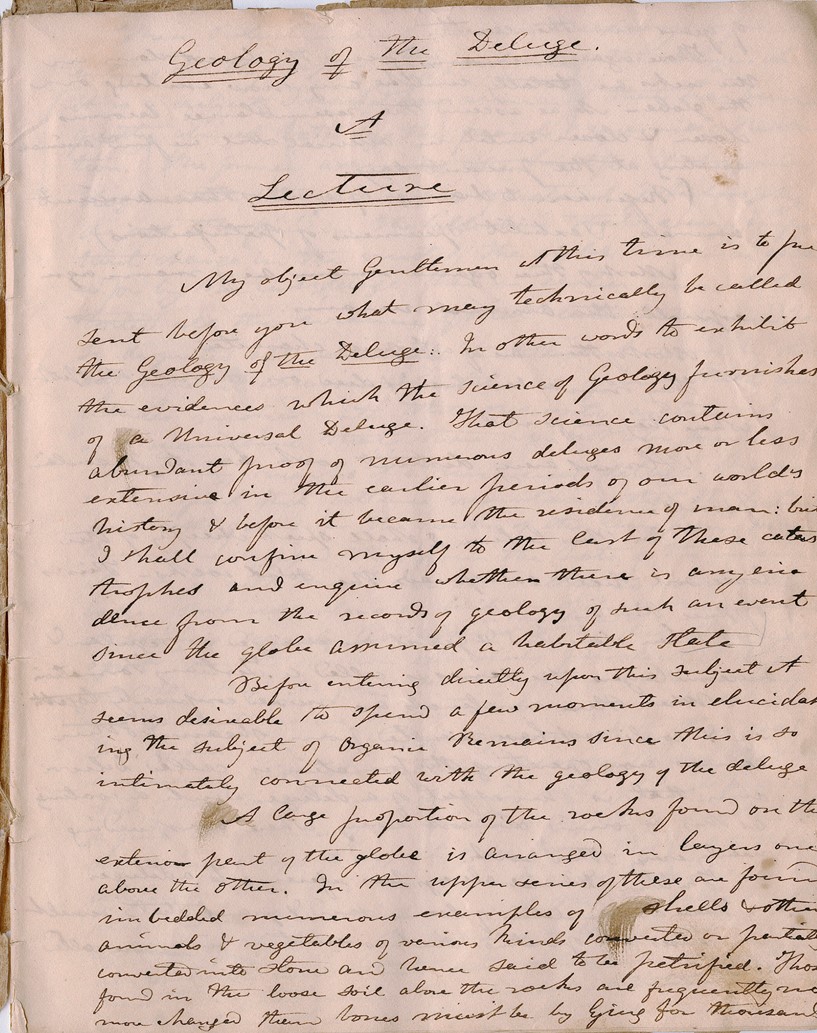 Geology of the Deluge.
A
Lecture
My object Gentlemen at this time is to pre
sent before you what may technically be called
the Geology of the Deluge: In other words to exhibit
the evidences which the science of Geology furnishes
of a Universal Deluge. That science contains
abundant proof of numerous deluges more or less
extensive in the earlier periods of our world's
history & before it became the residence of man: but
I shall confine myself to the last of these catas
trophes and enquire whether there is any evi
dence from the records of geology of such an event
since the globe assumed a habitable state
Before entering directly upon this subject it
seems desireable to spend a few moments in elucidat
ing the subject of Organic Remains since this is so
intimately connected with the geology of the deluge
A large proportion of the rocks found on the
exterior part of the globe is arranged in layers one
above the other. In the upper series of these are found
imbedded numerous examples of shells & other
animals & vegetables of various kinds converted or partially
converted into stone and hence said to be petrified. Those
found in the loose soil above the rocks are frequently no
more changed than bones must be by lying for thousand